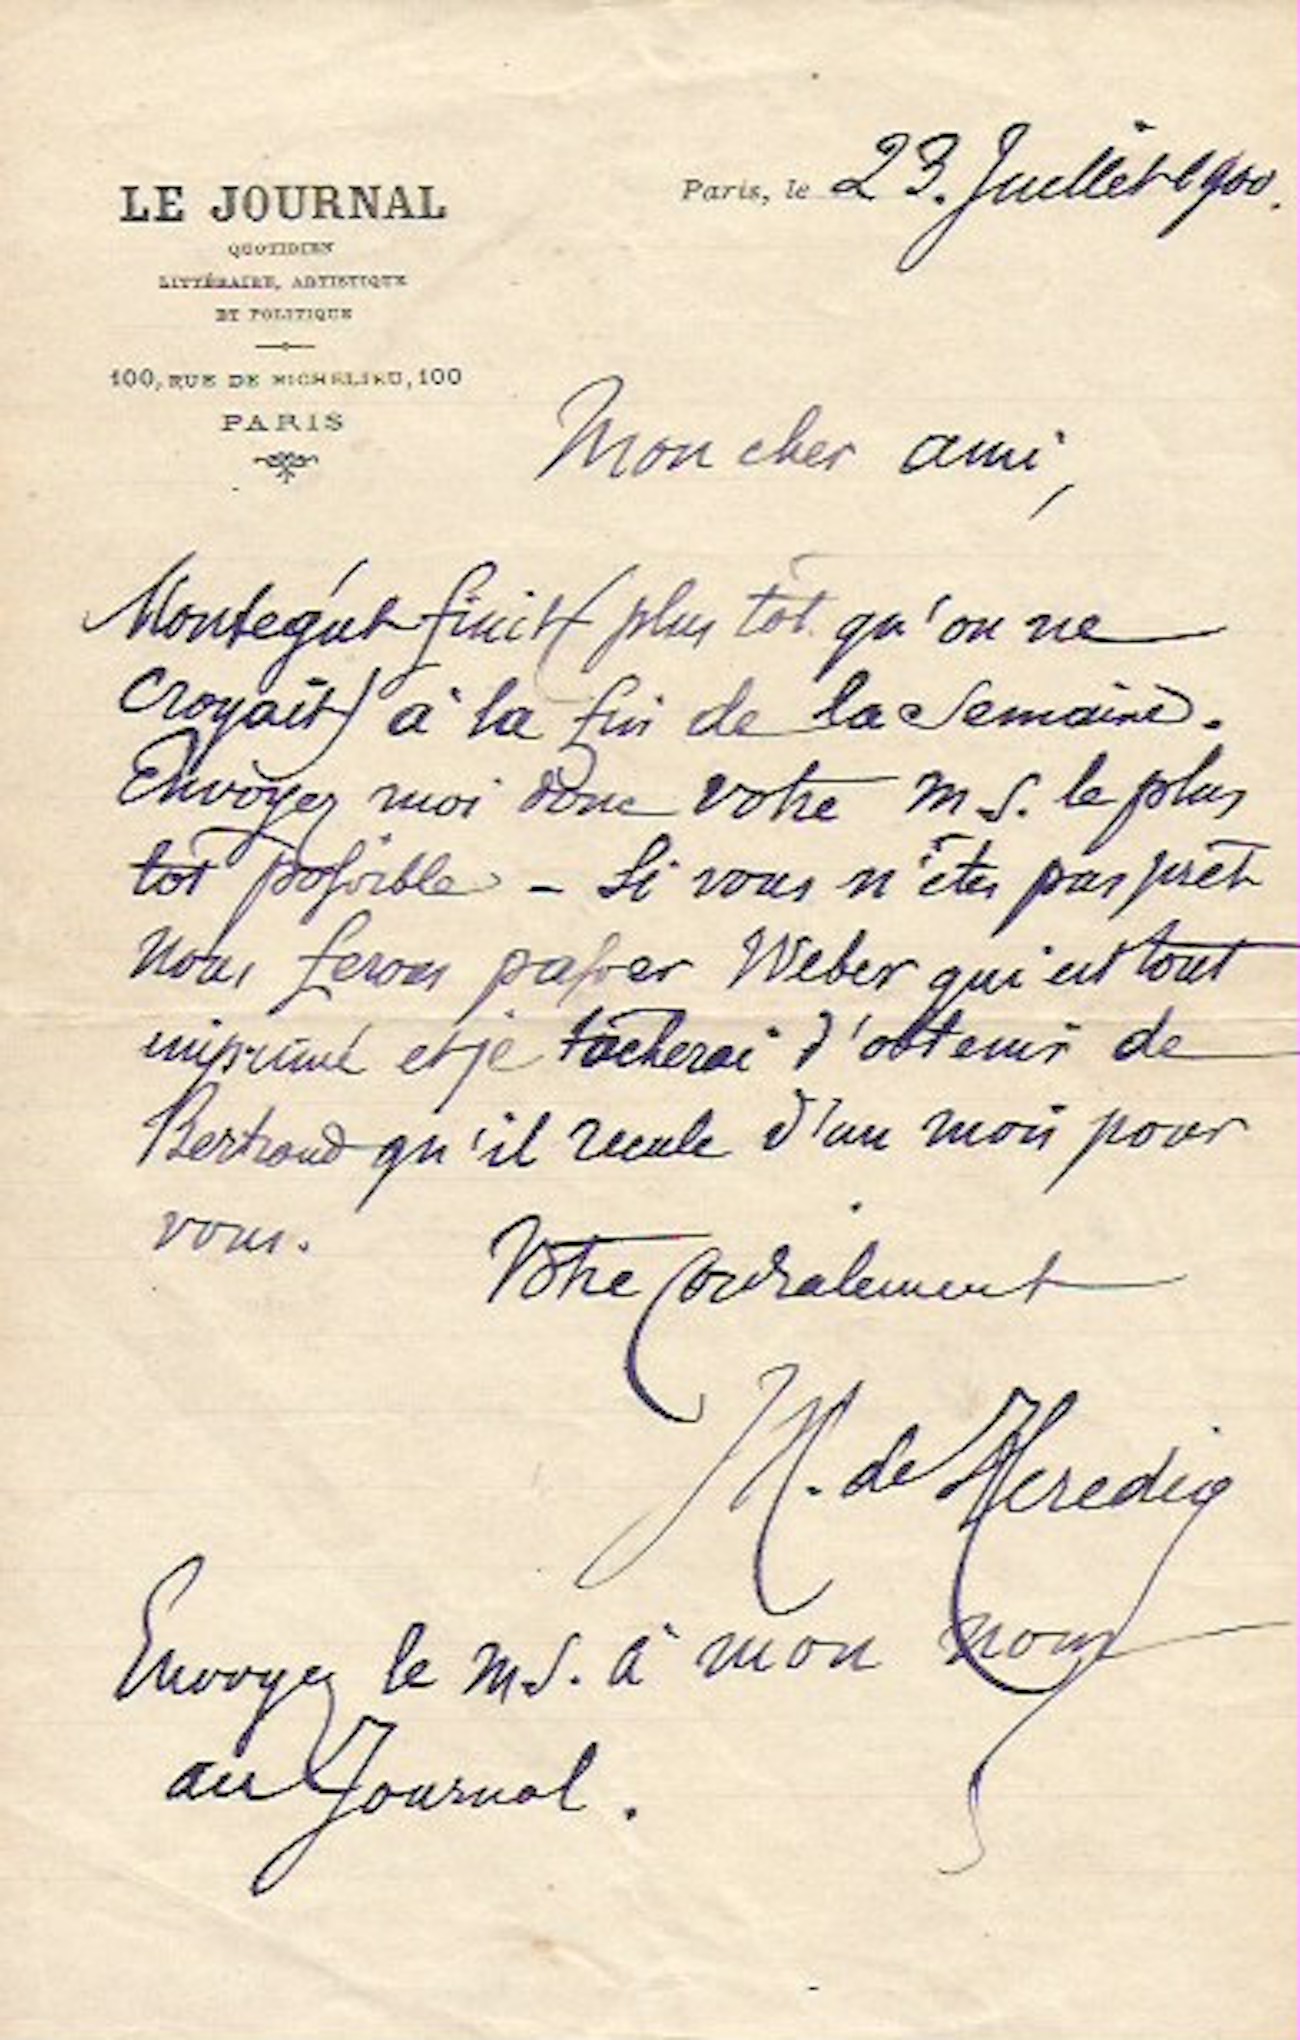 LE JOURNAL
QUOTIDIEN
LITTÉRAIRE, ARTISTIQUE
ET POLITIQUE
100, RUE DE RICHELIEU, 100
PARIS
Paris, le 23. Juillet 1900.
Mon cher ami,
Montégut finit (plus tôt qu'on ne
croyait) à la fin de la semaine.
Envoyez moi donc votre ms. le plus
tôt possible – Si vous n'êtes pas prêt
nous ferons passer Weber qui est tout
imprimé et je tâcherai d'obtenir de
Bertrand qu'il recule d'un mois pour
vous.
Votre cordialement
JM. de Heredia
Envoyez le ms. à mon nom
au Journal.